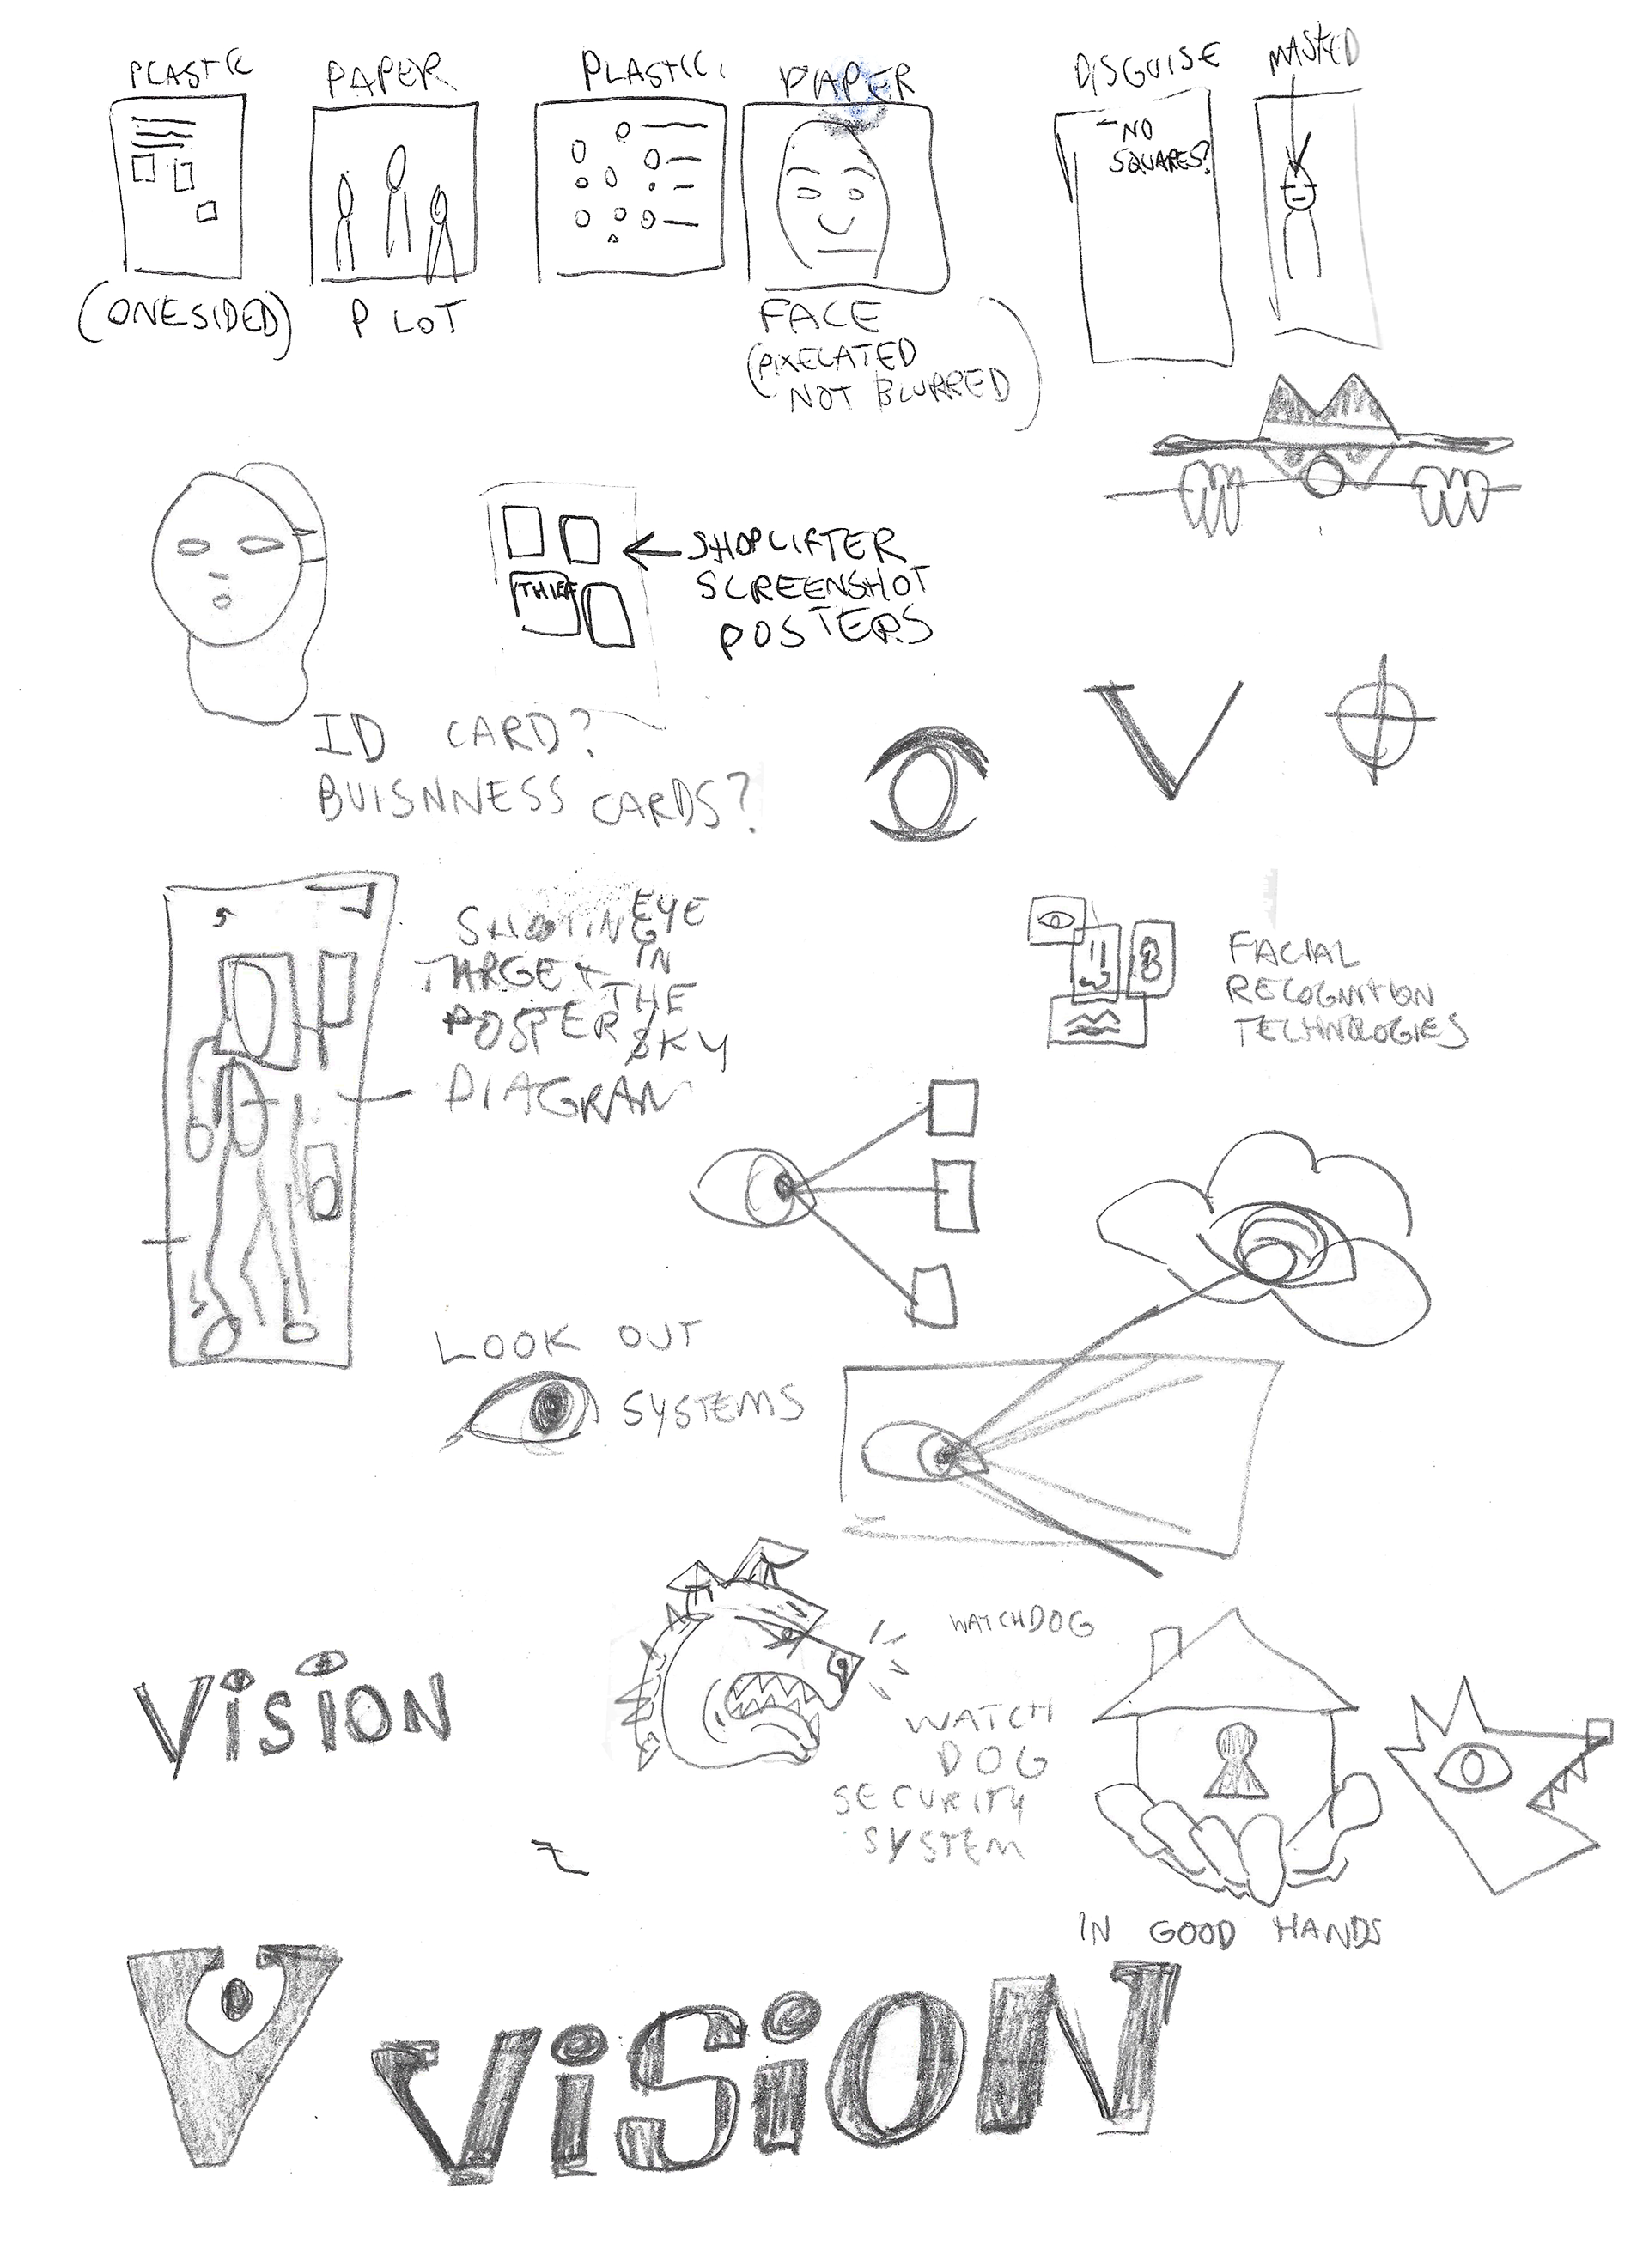 PLASTIC
PAPER
PLASTIC
PAPER
DISGUISE
MASKED
NO
SQUARES?
(ONESIDED)
PLOT
FACE
(PIXELATED
NOT BLURRED)
THIEF
SHOPLIFTER
SCREENSHOT
POSTERS
ID CARD?
BUISNNESS CARDS?
V
SHOOTING
TARGET
POSTER
DIAGRAM
EYE
IN
THE
SKY
FACIAL
RECOGNITION
TECHNOLOGIES
LOOK OUT
SYSTEMS
WATCHDOG
VisiON
WATCH
DOG
SECURITY
SYSTEM
IN GOOD HANDS
V
ViSiON